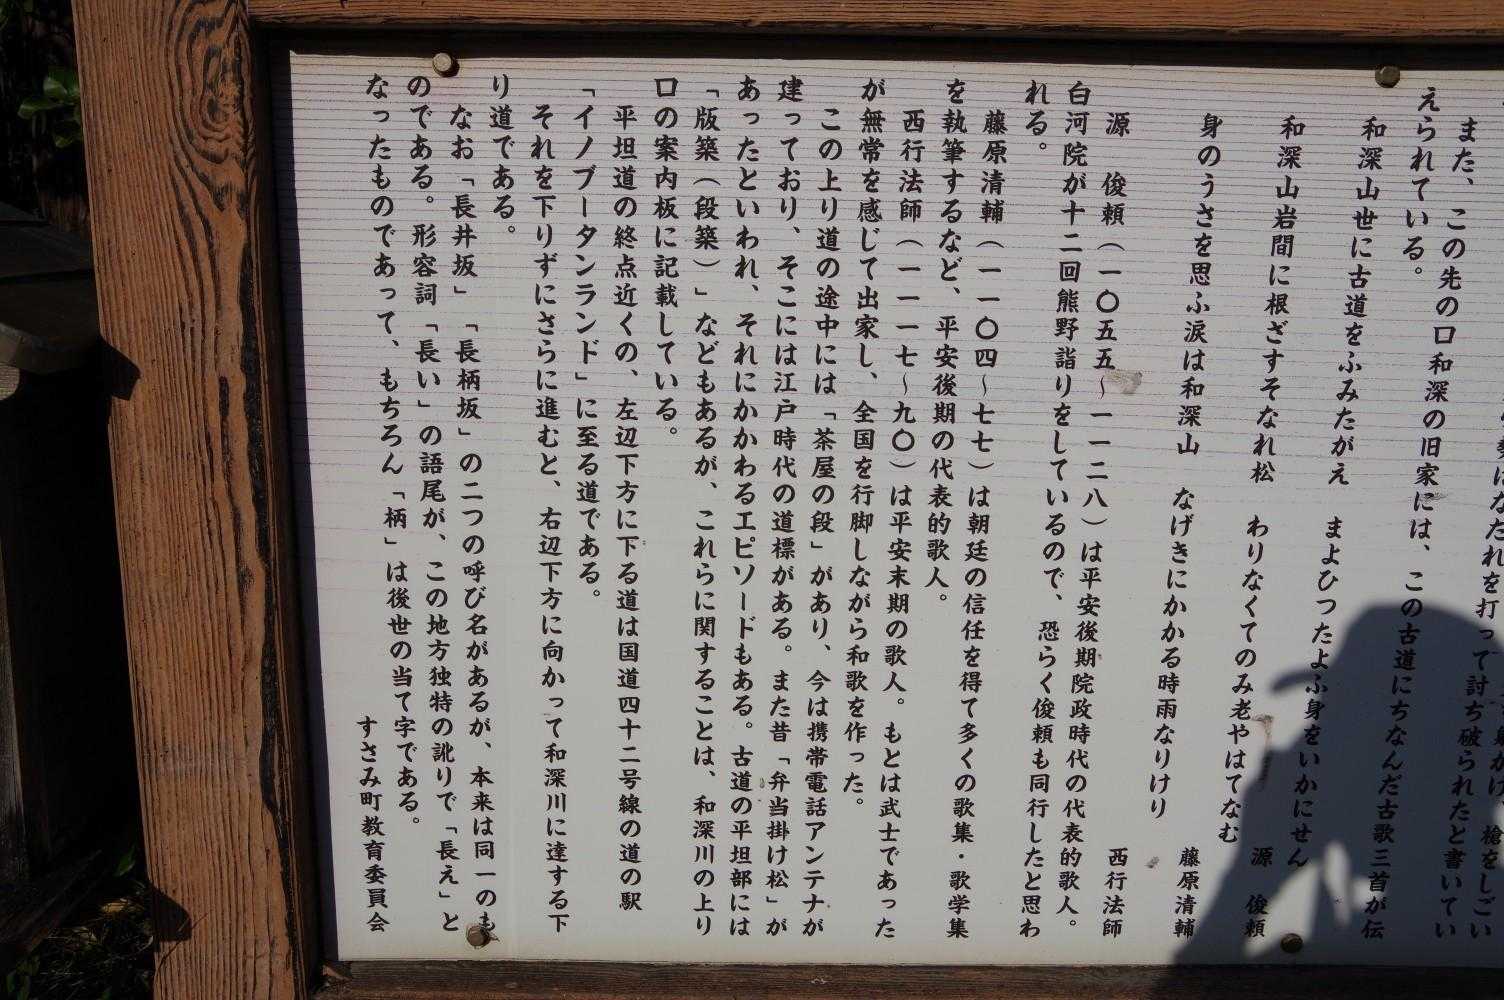 勢はなだれを打って討ち破られたと書いてい
また、この先の口和深の旧家には、この古道にちなんだ古歌三首が伝
えられている。
和深山世に古道をふみたがえ　まよひつたよふ身をいかにせん
源　俊頼
和深山岩間に根ざすそなれ松　わりなくてのみ老やはてなむ
藤原清輔
身のうさを思ふ涙は和深山　なげきにかかる時雨なりけり
西行法師
源　俊頼（一〇五五～一一二八）は平安後期院政時代の代表的歌人。
白河院が十二回熊野詣りをしているので、恐らく俊頼も同行したと思わ
れる。
藤原清輔（一一〇四～七七）は朝廷の信任を得て多くの歌集・歌学集
を執筆するなど、平安後期の代表的歌人。
西行法師（一一一七～九〇）は平安末期の歌人。もとは武士であった
が無常を感じて出家し、全国を行脚しながら和歌を作った。
この上り道の途中には「茶屋の段」があり、今は携帯電話アンテナが
建っており、そこには江戸時代の道標がある。また昔「弁当掛け松」が
あったといわれ、それにかかわるエピソードもある。古道の平坦部には
「版築（段築）」などもあるが、これらに関することは、和深川の上り
口の案内板に記載している。
平坦道の終点近くの、左辺下方に下る道は国道四十二号線の道の駅
「イノブータンランド」に至る道である。
それを下りずにさらに進むと、右辺下方に向かって和深川に達する下
り道である。
なお「長井坂」「長柄坂」の二つの呼び名があるが、本来は同一のも
のである。形容詞「長い」の語尾が、この地方独特の訛りで「長え」と
なったものであって、もちろん「柄」は後世の当て字である。
すさみ町教育委員会